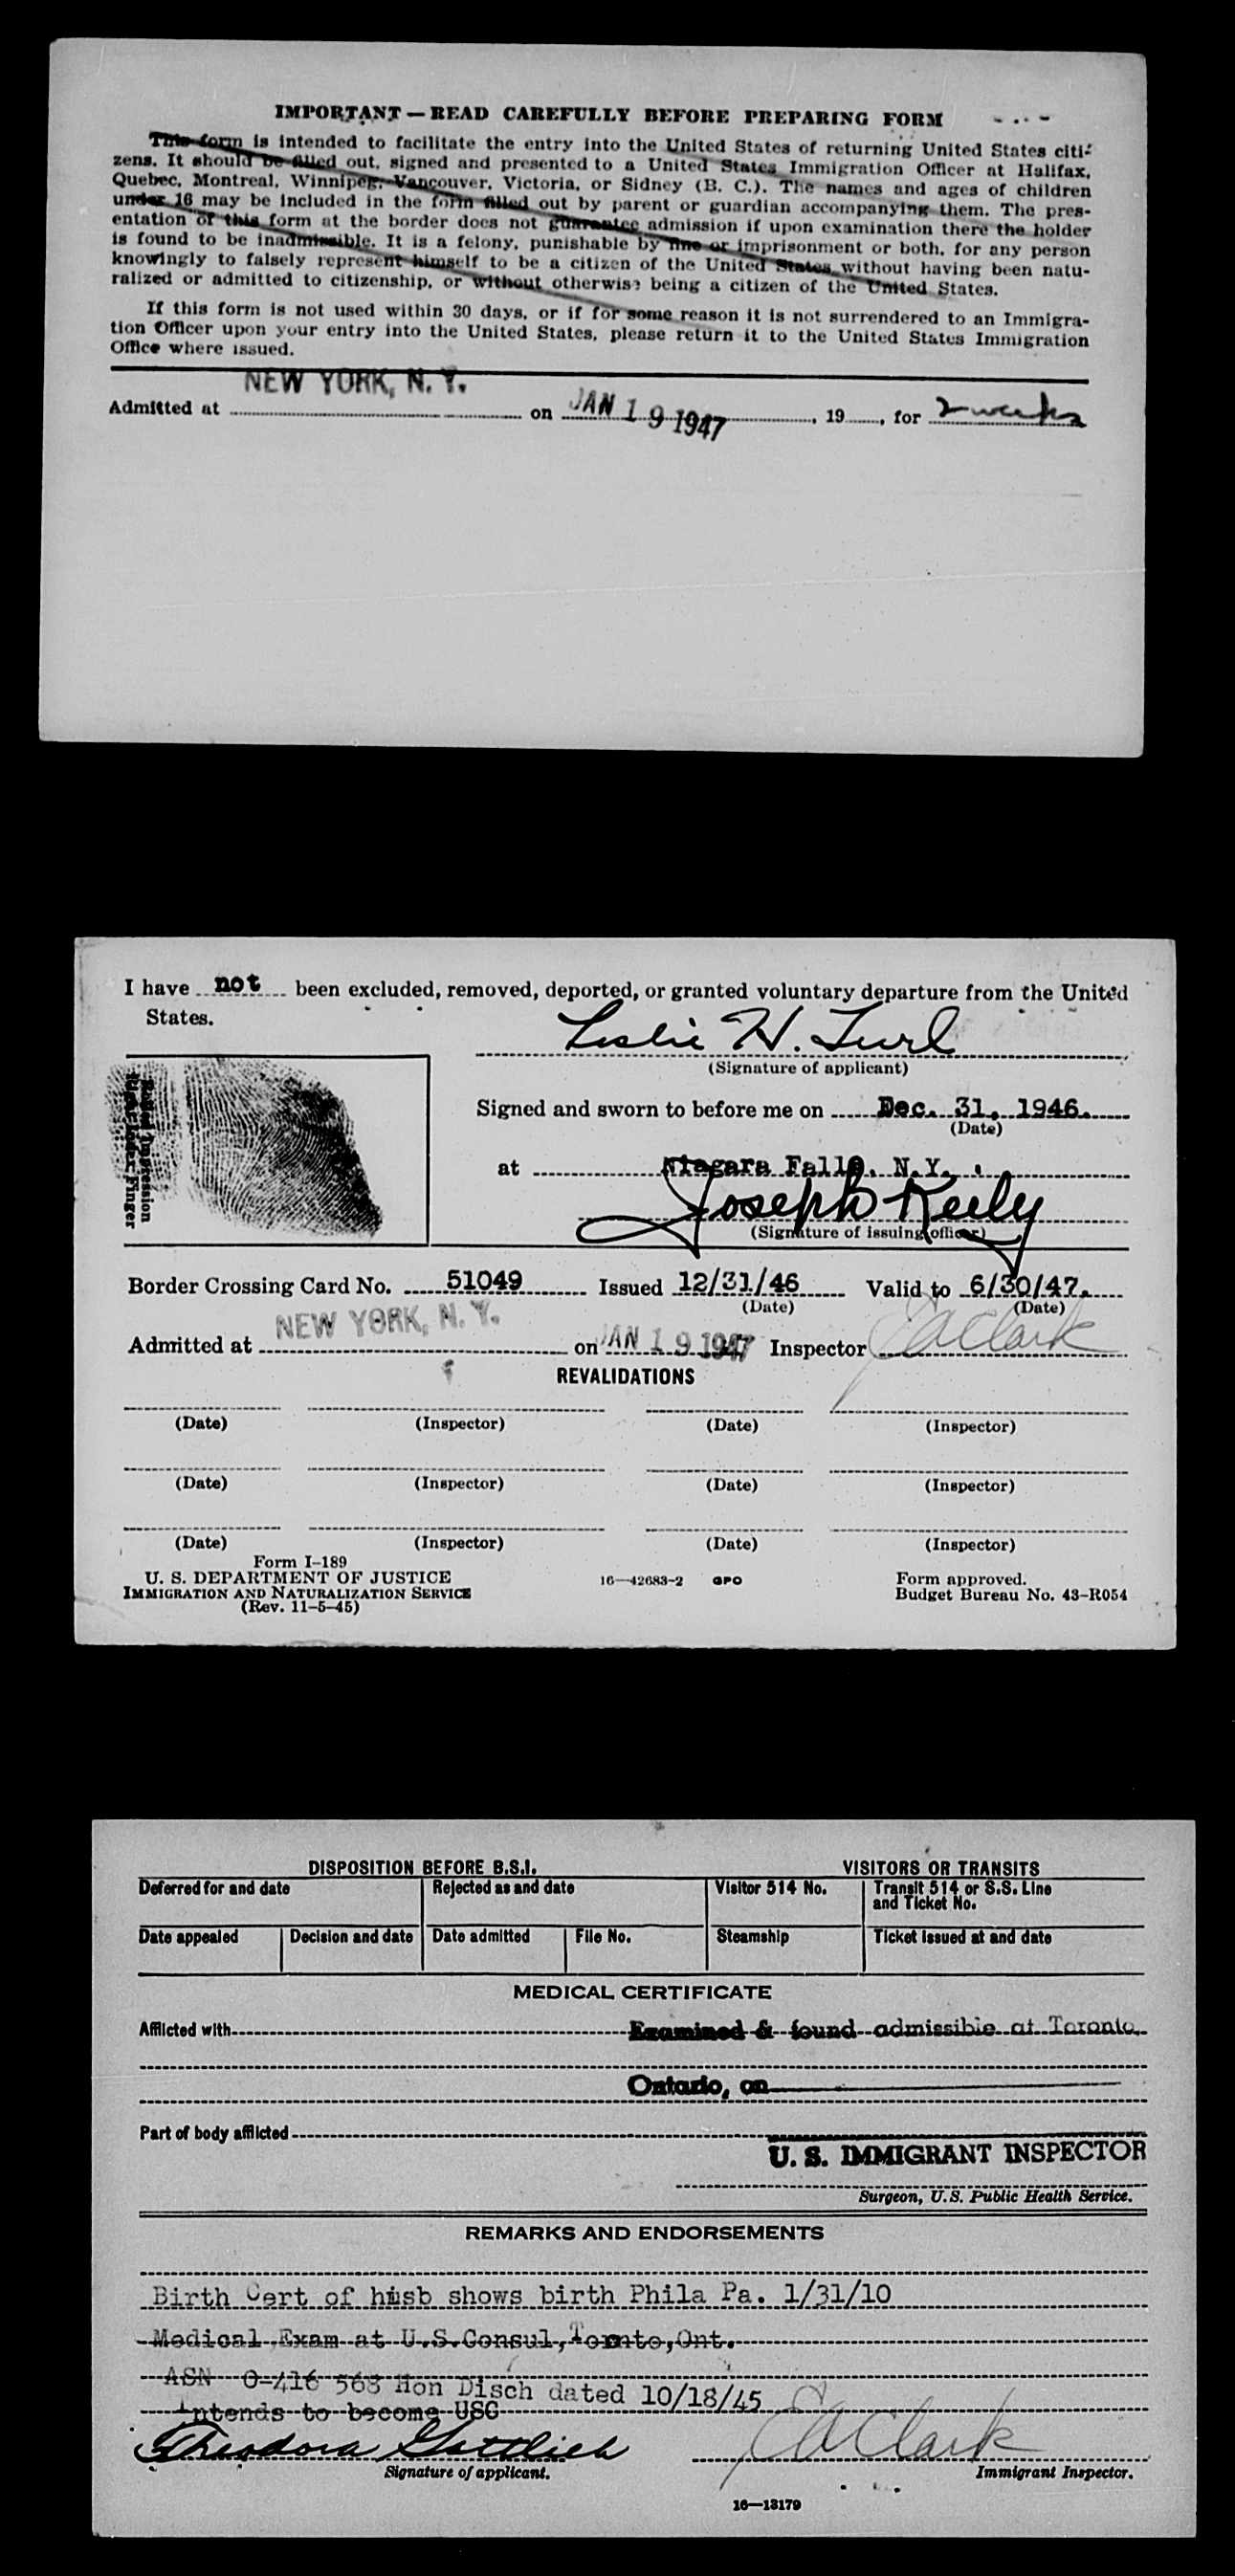 IMPORTANT — READ CAREFULLY BEFORE PREPARING FORM
This form is intended to facilitate the entry into the United States of returning United States citi-
zens. It should be filled out, signed and presented to a United States Immigration Officer at Halifax,
Quebec, Montreal, Winnipeg, Vancouver, Victoria, or Sidney (B. C.). The names and ages of children
under 16 may be included in the form filled out by parent or guardian accompanying them. The pres-
entation of this form at the border does not guarantee admission if upon examination there the holder
is found to be inadmissible. It is a felony, punishable by fine or imprisonment or both, for any person
knowingly to falsely represent himself to be a citizen of the United States without having been natu-
ralized or admitted to citizenship, or without otherwise being a citizen of the United States.
If this form is not used within 30 days, or if for some reason it is not surrendered to an Immigra-
tion Officer upon your entry into the United States, please return it to the United States Immigration
Office where issued.
Admitted at NEW YORK, N. Y. on JAN 19 1947, 19...., for 2 weeks
I have not been excluded, removed, deported, or granted voluntary departure from the United
States.
Leslie H. Turl
(Signature of applicant)
Rolled Impression
Right Index Finger
Signed and sworn to before me on Dec. 31, 1946.
(Date)
at Niagara Falls, N.Y.
Joseph Keely
(Signature of issuing officer)
Border Crossing Card No. 51049 Issued 12/31/46 Valid to 6/30/47.
(Date) (Date)
Admitted at NEW YORK, N. Y. on JAN 19 1947 Inspector EA Clark
REVALIDATIONS
(Date) (Inspector) (Date) (Inspector)
(Date) (Inspector) (Date) (Inspector)
(Date) (Inspector) (Date) (Inspector)
Form I-189
U. S. DEPARTMENT OF JUSTICE
IMMIGRATION AND NATURALIZATION SERVICE
(Rev. 11-5-45)
16—42683-2 GPO
Form approved.
Budget Bureau No. 43-R054
DISPOSITION BEFORE B.S.I. VISITORS OR TRANSITS
Deferred for and date Rejected as and date Visitor 514 No. Transit 514 or S.S. Line
and Ticket No.
Date appealed Decision and date Date admitted File No. Steamship Ticket issued at and date
MEDICAL CERTIFICATE
Afflicted with Examined & found admissible at Toronto,
Ontario, on
Part of body afflicted
U. S. IMMIGRANT INSPECTOR
Surgeon, U.S. Public Health Service.
REMARKS AND ENDORSEMENTS
Birth Cert of husb shows birth Phila Pa. 1/31/10
Medical Exam at U.S.Consul,Toronto,Ont.
ASN O-416 568 Hon Disch dated 10/18/45
Intends to become USC
Theodora Gottlieb EA Clark
Signature of applicant. Immigrant Inspector.
16—13179